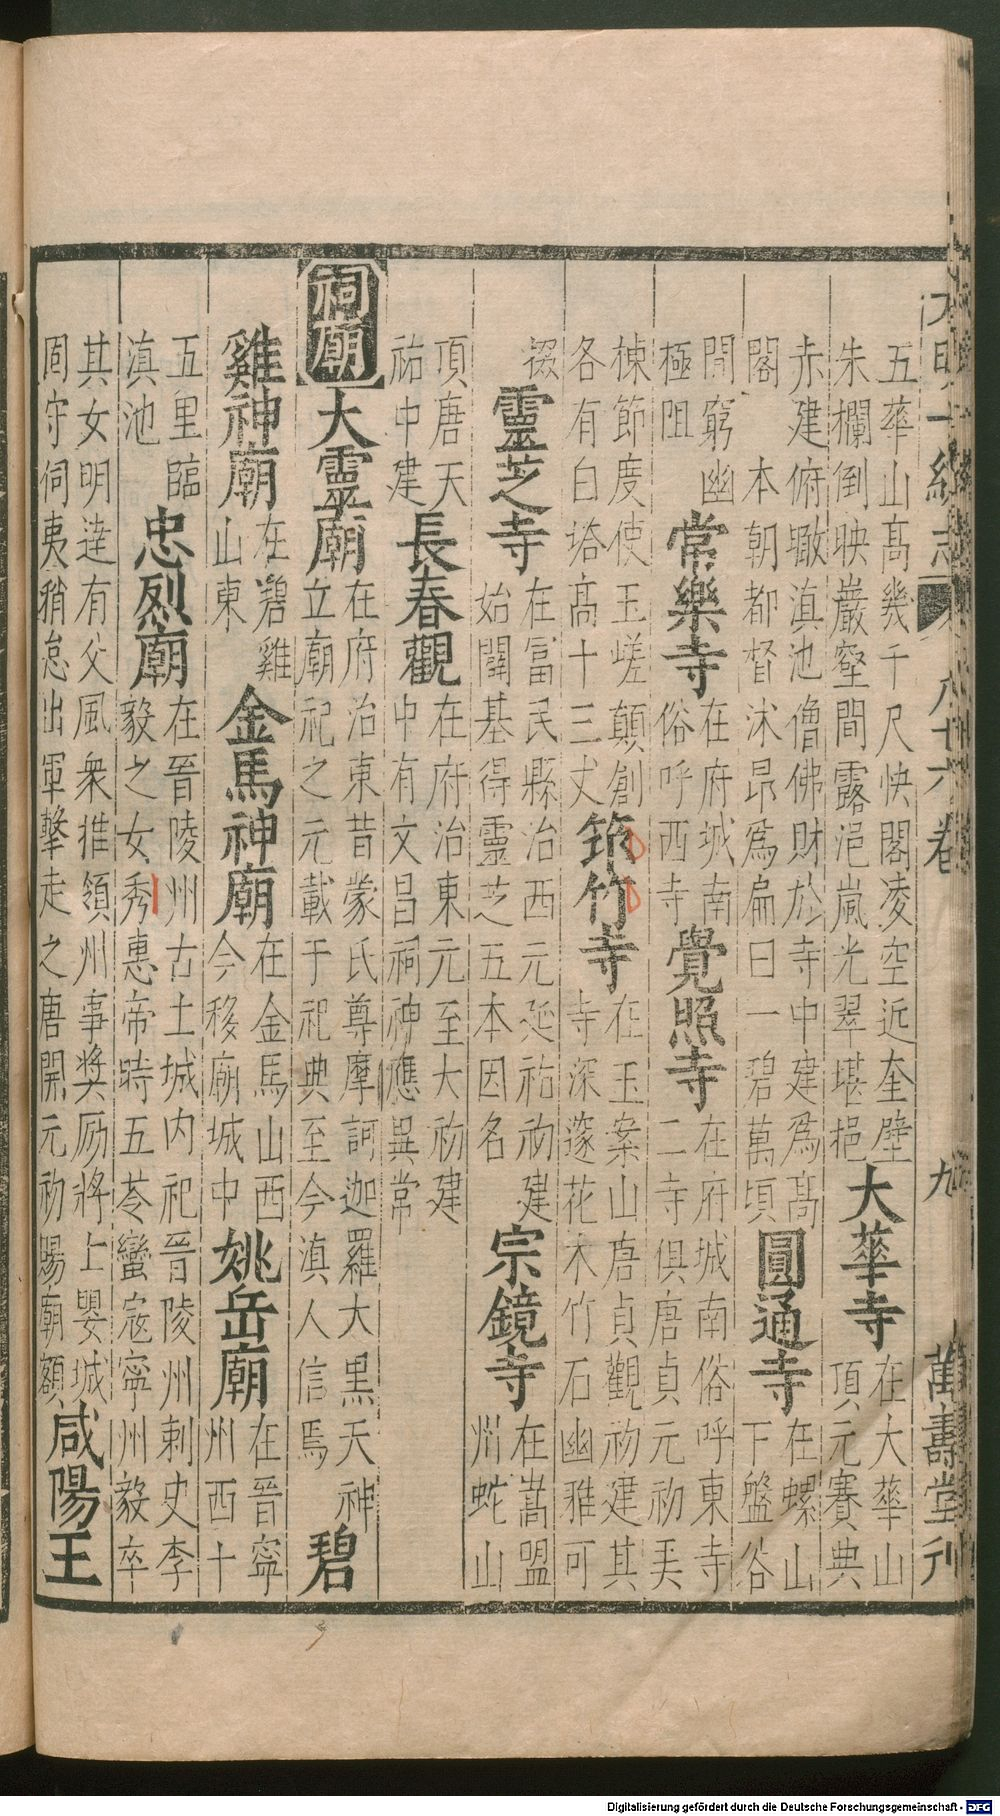 大明一統志 八十六卷 九 萬壽堂刊
五華山高幾千尺快閣凌空近奎壁
朱欄倒映巖壑間露浥嵐光翠堪挹
大華寺
在大華山
頂元賽典
赤建俯瞰滇池僧佛財於寺中建爲高
閣 本朝都督沐昂爲扁曰一碧萬頃
圓通寺
在螺山
下盤谷
間窮幽
極阻
常樂寺
在府城南
俗呼西寺
覺照寺
在府城南俗呼東寺
二寺俱唐貞元初弄
棟節度使王嵯顛創
各有白塔高十三丈
筇竹寺
在玉案山唐貞觀初建其
寺深邃花木竹石幽雅可
掇
靈芝寺
在富民縣治西元延祐初建
始闢基得靈芝五本因名
宗鏡寺
在嵩盟
州蛇山
頂唐天
祐中建
長春觀
在府治東元至大初建
中有文昌祠神應異常
祠廟
大靈廟
在府治東昔蒙氏尊摩訶迦羅大黑天神
立廟祀之元載于祀典至今滇人信焉
碧
雞神廟
在碧雞
山東
金馬神廟
在金馬山西
今移廟城中
姚岳廟
在晉寧
州西十
五里臨
滇池
忠烈廟
在晉陵州古土城内祀晉陵州刺史李
毅之女秀惠帝時五苓蠻寇寧州毅卒
其女明達有父風衆推領州事奬厲將上嬰城
固守伺夷稍怠出軍擊走之唐開元初賜廟額
咸陽王
Digitalisierung gefördert durch die Deutsche Forschungsgemeinschaft - DFG